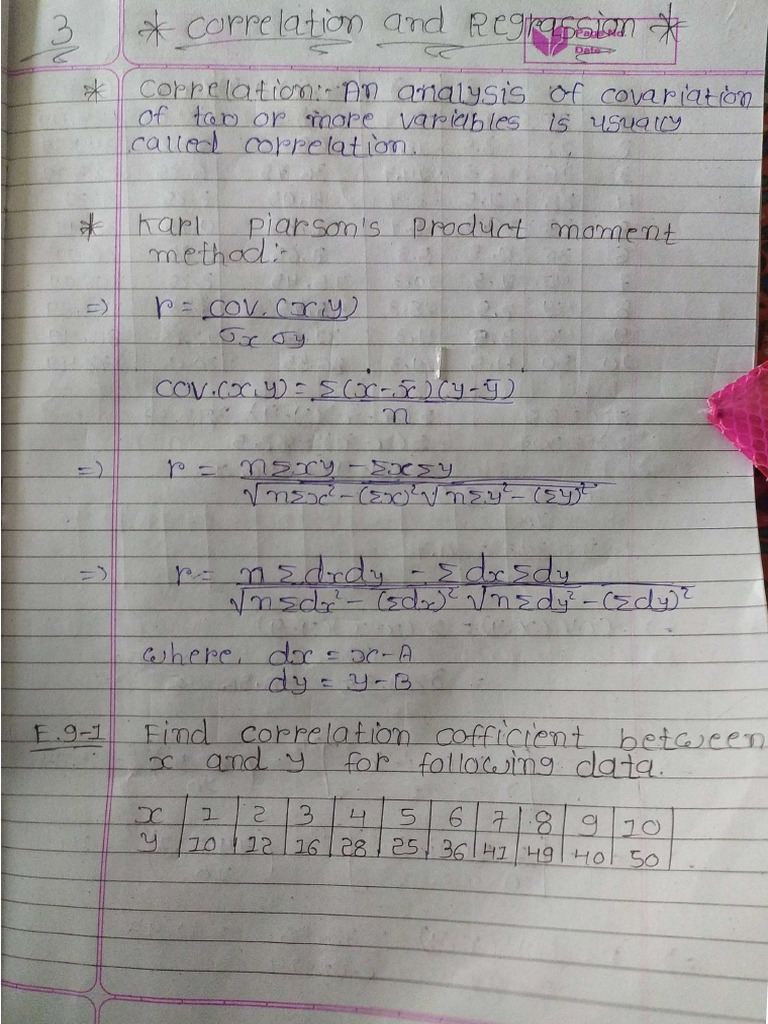 3 * Correlation and Regression *
Page No
Date
* Correlation:- An analysis of covariation
of two or more variables is usually
called correlation.
* Karl Piarson's Product moment
method:-
=) r = cov.(x,y)
σx σy
cov.(x,y) = Σ(x-x̄)(y-ȳ)
n
=) r = nΣxy - ΣxΣy
√nΣx²-(Σx)² √nΣy²-(Σy)²
=) r = nΣdxdy - ΣdxΣdy
√nΣdx²-(Σdx)² √nΣdy²-(Σdy)²
where, dx = x-A
dy = y-B
E.g-1 Find correlation cofficient between
x and y for following data.
x 1 2 3 4 5 6 7 8 9 10
y 10 12 16 28 25 36 41 49 40 50